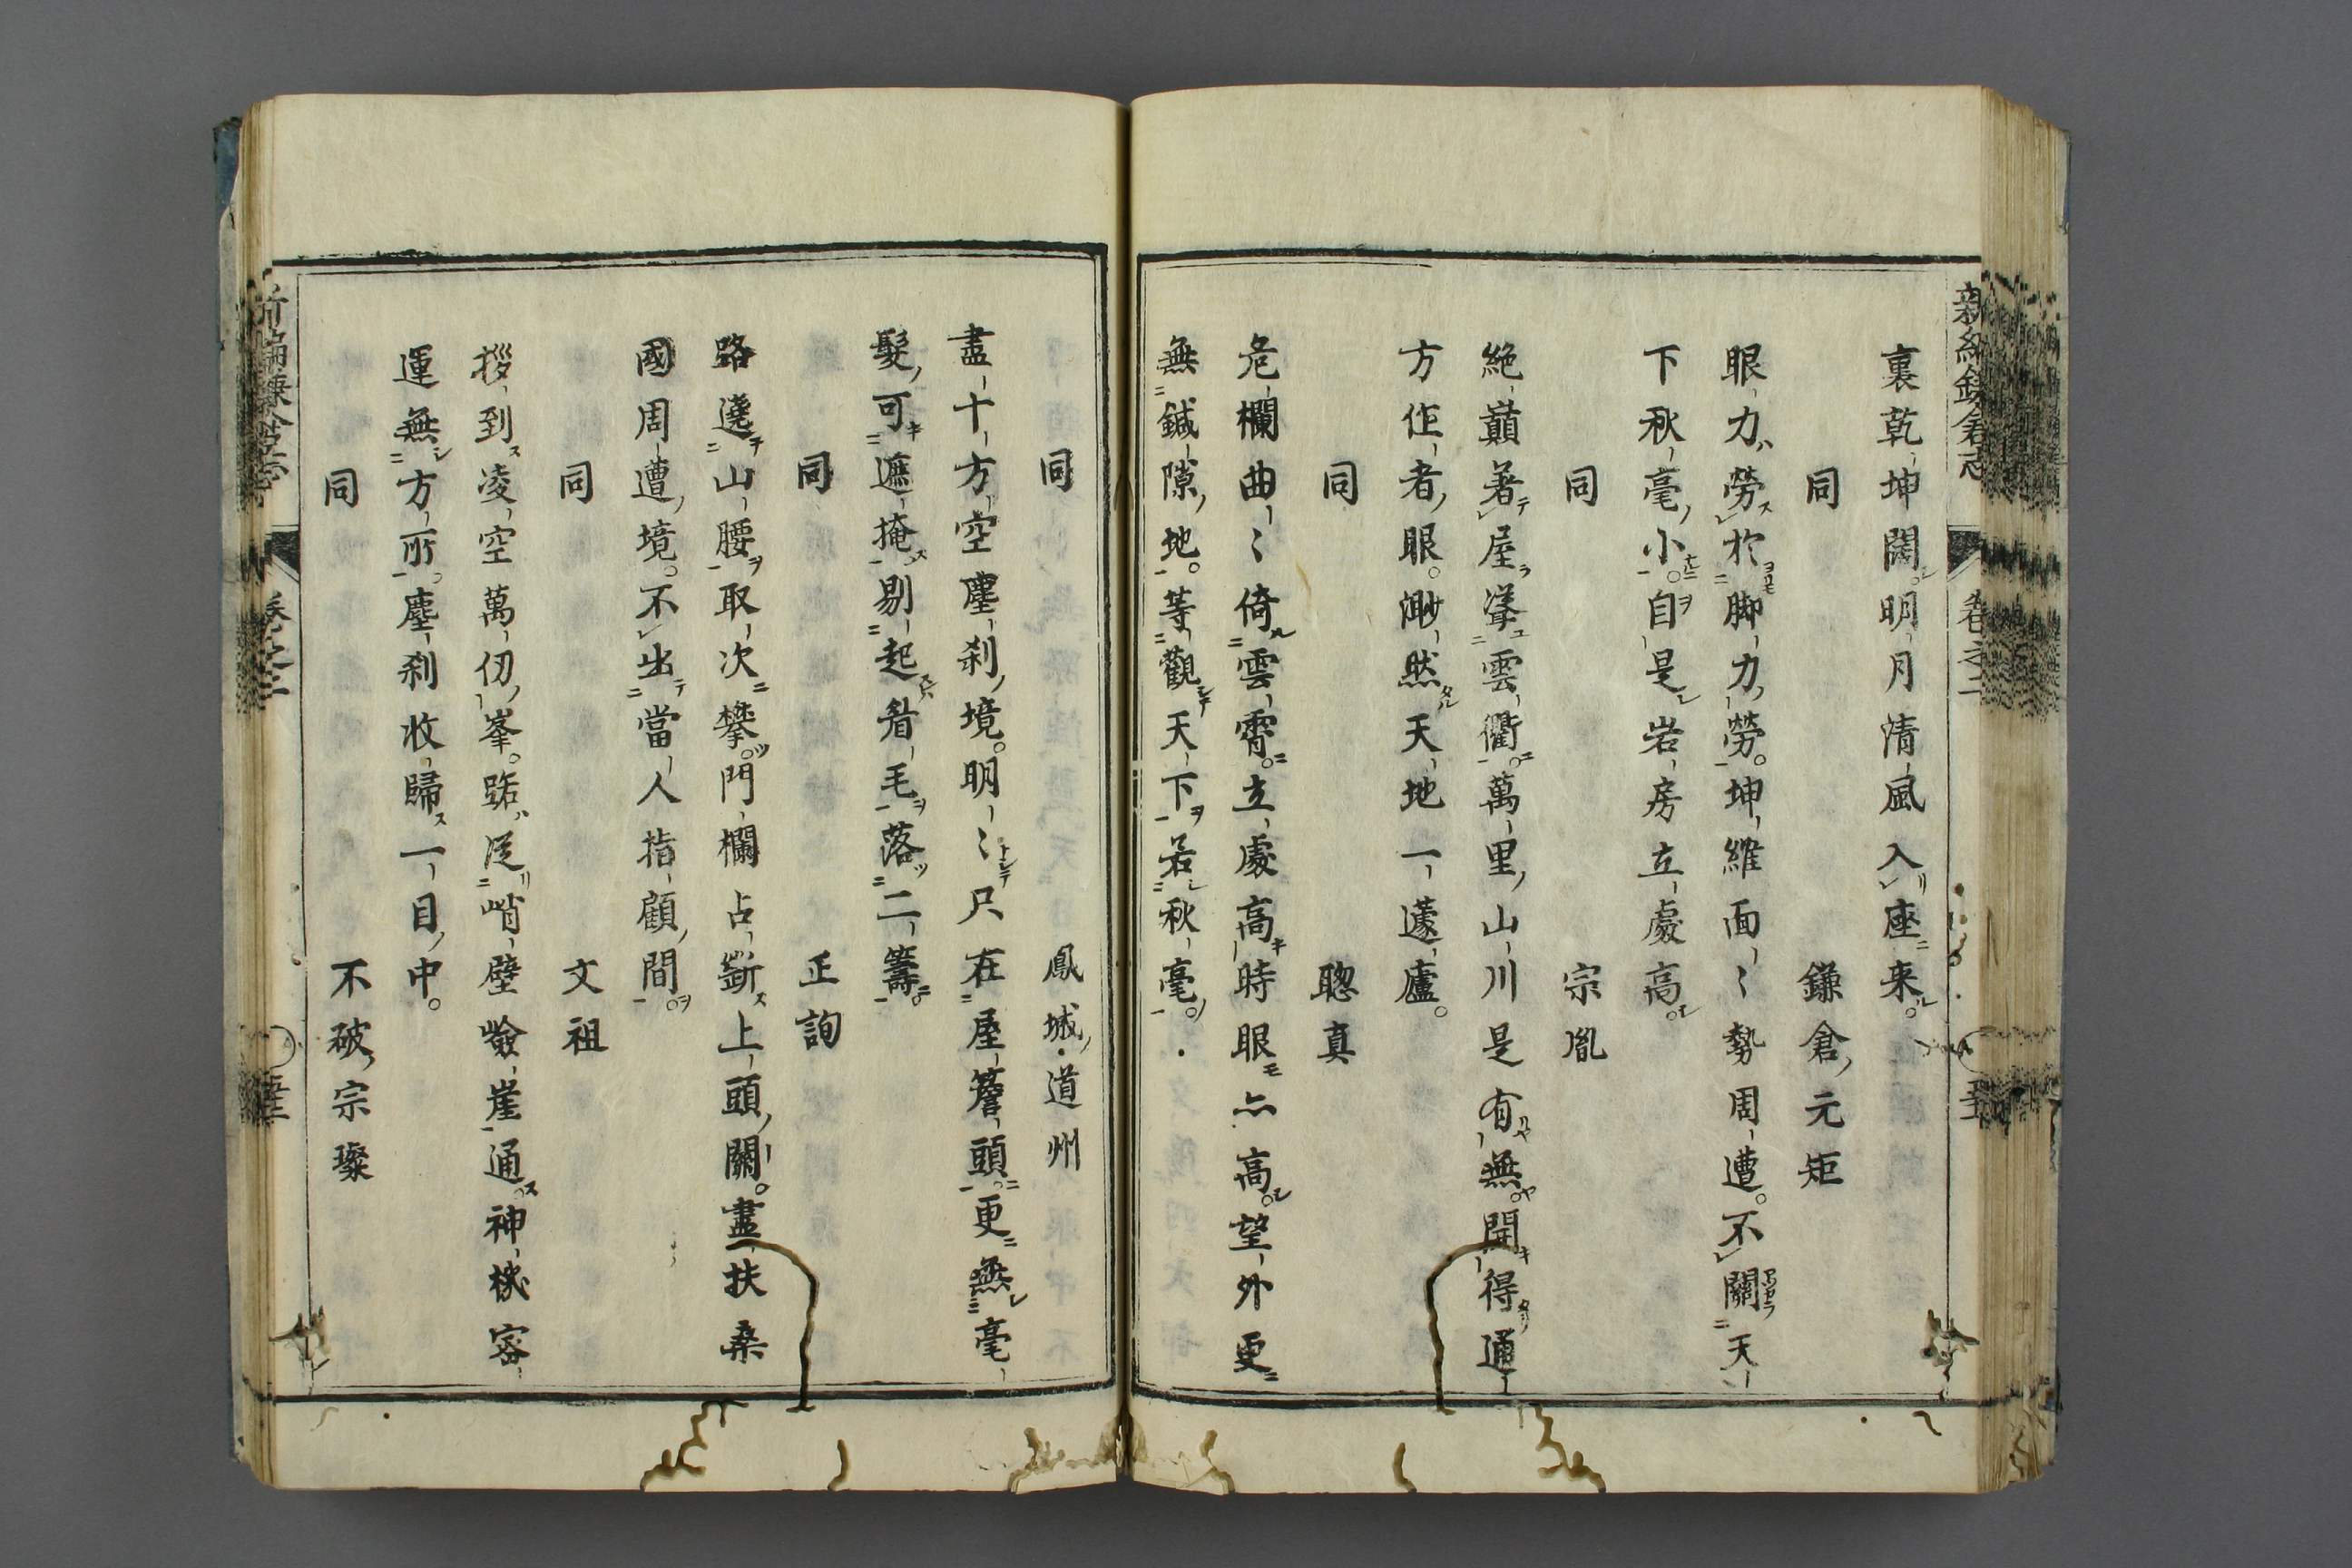 裏乾坤闊明月清風入座来
同　鎌倉元矩
眼力勞於脚力勞坤維面〻勢周遭不關天
下秋毫小自是岩房立處高
同　宗胤
絶巓著屋聳雲衢萬里山川是有無開得通
方作者眼渺然天地一蘧廬
同　聰真
危欄曲〻倚雲霄立處高時眼亦高望外更
無鍼隙地等觀天下若秋毫
同　鳳城道州
盡十方空塵刹境明〻只在屋簷頭更無毫
髮可遮掩剔起眉毛落二籌
同　正詢
路遶山腰取次攀門欄占斷上頭關盡扶桒
國周遭境不出當人指顧間
同　文祖
拶到凌空萬仞峯路從峭壁嶮崖通神機密
運無方所塵刹收歸一目中
同　不破宗璨
新編鎌倉志　卷之二
新編鎌倉志　卷之二